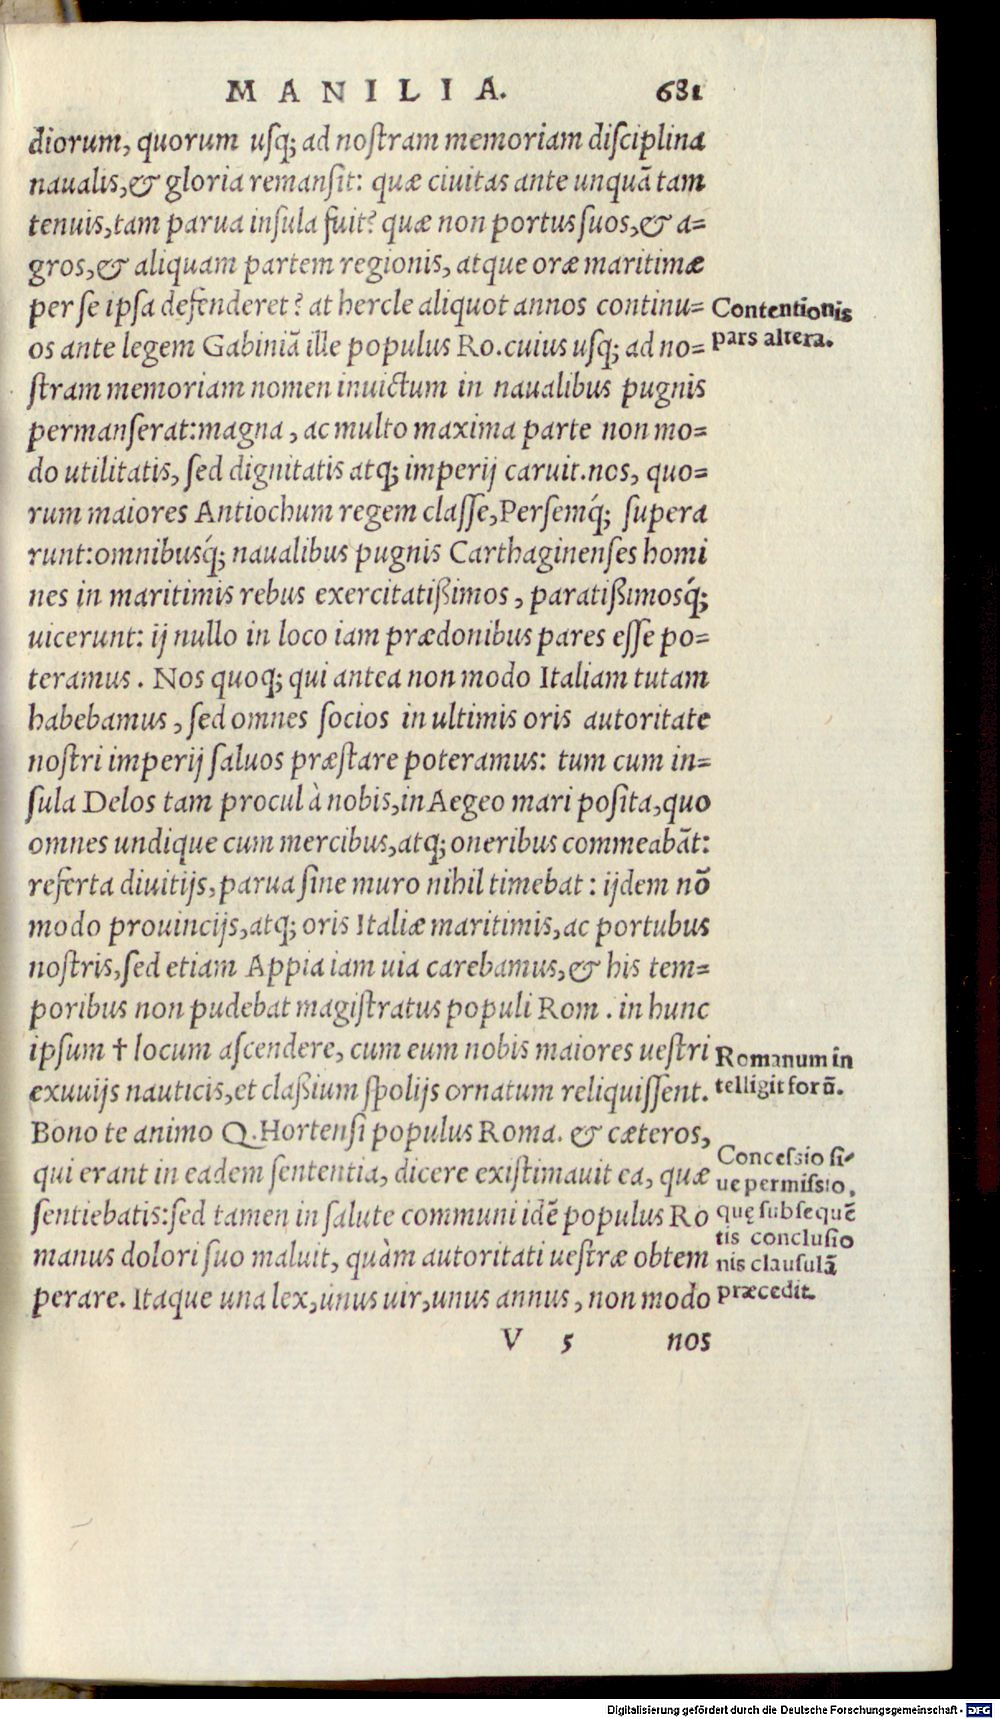 MANILIA. 681
diorum, quorum usq; ad nostram memoriam disciplina
naualis, & gloria remansit: quæ ciuitas ante unquā tam
tenuis, tam parua insula fuit? quæ non portus suos, & a=
gros, & aliquam partem regionis, atque oræ maritimæ
per se ipsa defenderet? at hercle aliquot annos continu=
os ante legem Gabiniā ille populus Ro. cuius usq; ad no=
stram memoriam nomen inuictum in naualibus pugnis
permanserat: magna, ac multo maxima parte non mo=
do utilitatis, sed dignitatis atq; imperij caruit. nos, quo=
rum maiores Antiochum regem classe, Persemq́; supera
runt: omnibusq́; naualibus pugnis Carthaginenses homi
nes in maritimis rebus exercitatißimos, paratißimosq́;
uicerunt: ij nullo in loco iam prædonibus pares esse po=
teramus. Nos quoq; qui antea non modo Italiam tutam
habebamus, sed omnes socios in ultimis oris autoritate
nostri imperij saluos præstare poteramus: tum cum in=
sula Delos tam procul à nobis, in Aegeo mari posita, quo
omnes undique cum mercibus, atq; oneribus commeabāt:
referta diuitijs, parua sine muro nihil timebat: ijdem nō
modo prouincijs, atq; oris Italiæ maritimis, ac portubus
nostris, sed etiam Appia iam uia carebamus, & his tem=
poribus non pudebat magistratus populi Rom. in hunc
ipsum † locum ascendere, cum eum nobis maiores uestri
exuuijs nauticis, et claßium spolijs ornatum reliquissent.
Bono te animo Q. Hortensi populus Roma. & cæteros,
qui erant in eadem sententia, dicere existimauit ea, quæ
sentiebatis: sed tamen in salute communi idē populus Ro
manus dolori suo maluit, quàm autoritati uestræ obtem
perare. Itaque una lex, unus uir, unus annus, non modo
V 5 nos
Contentionis
pars altera.
Romanum in
telligit forū.
Concessio si-
ue permissio,
quę subsequē
tis conclusio
nis clausulā
præcedit.
Digitalisierung gefördert durch die Deutsche Forschungsgemeinschaft - DFG